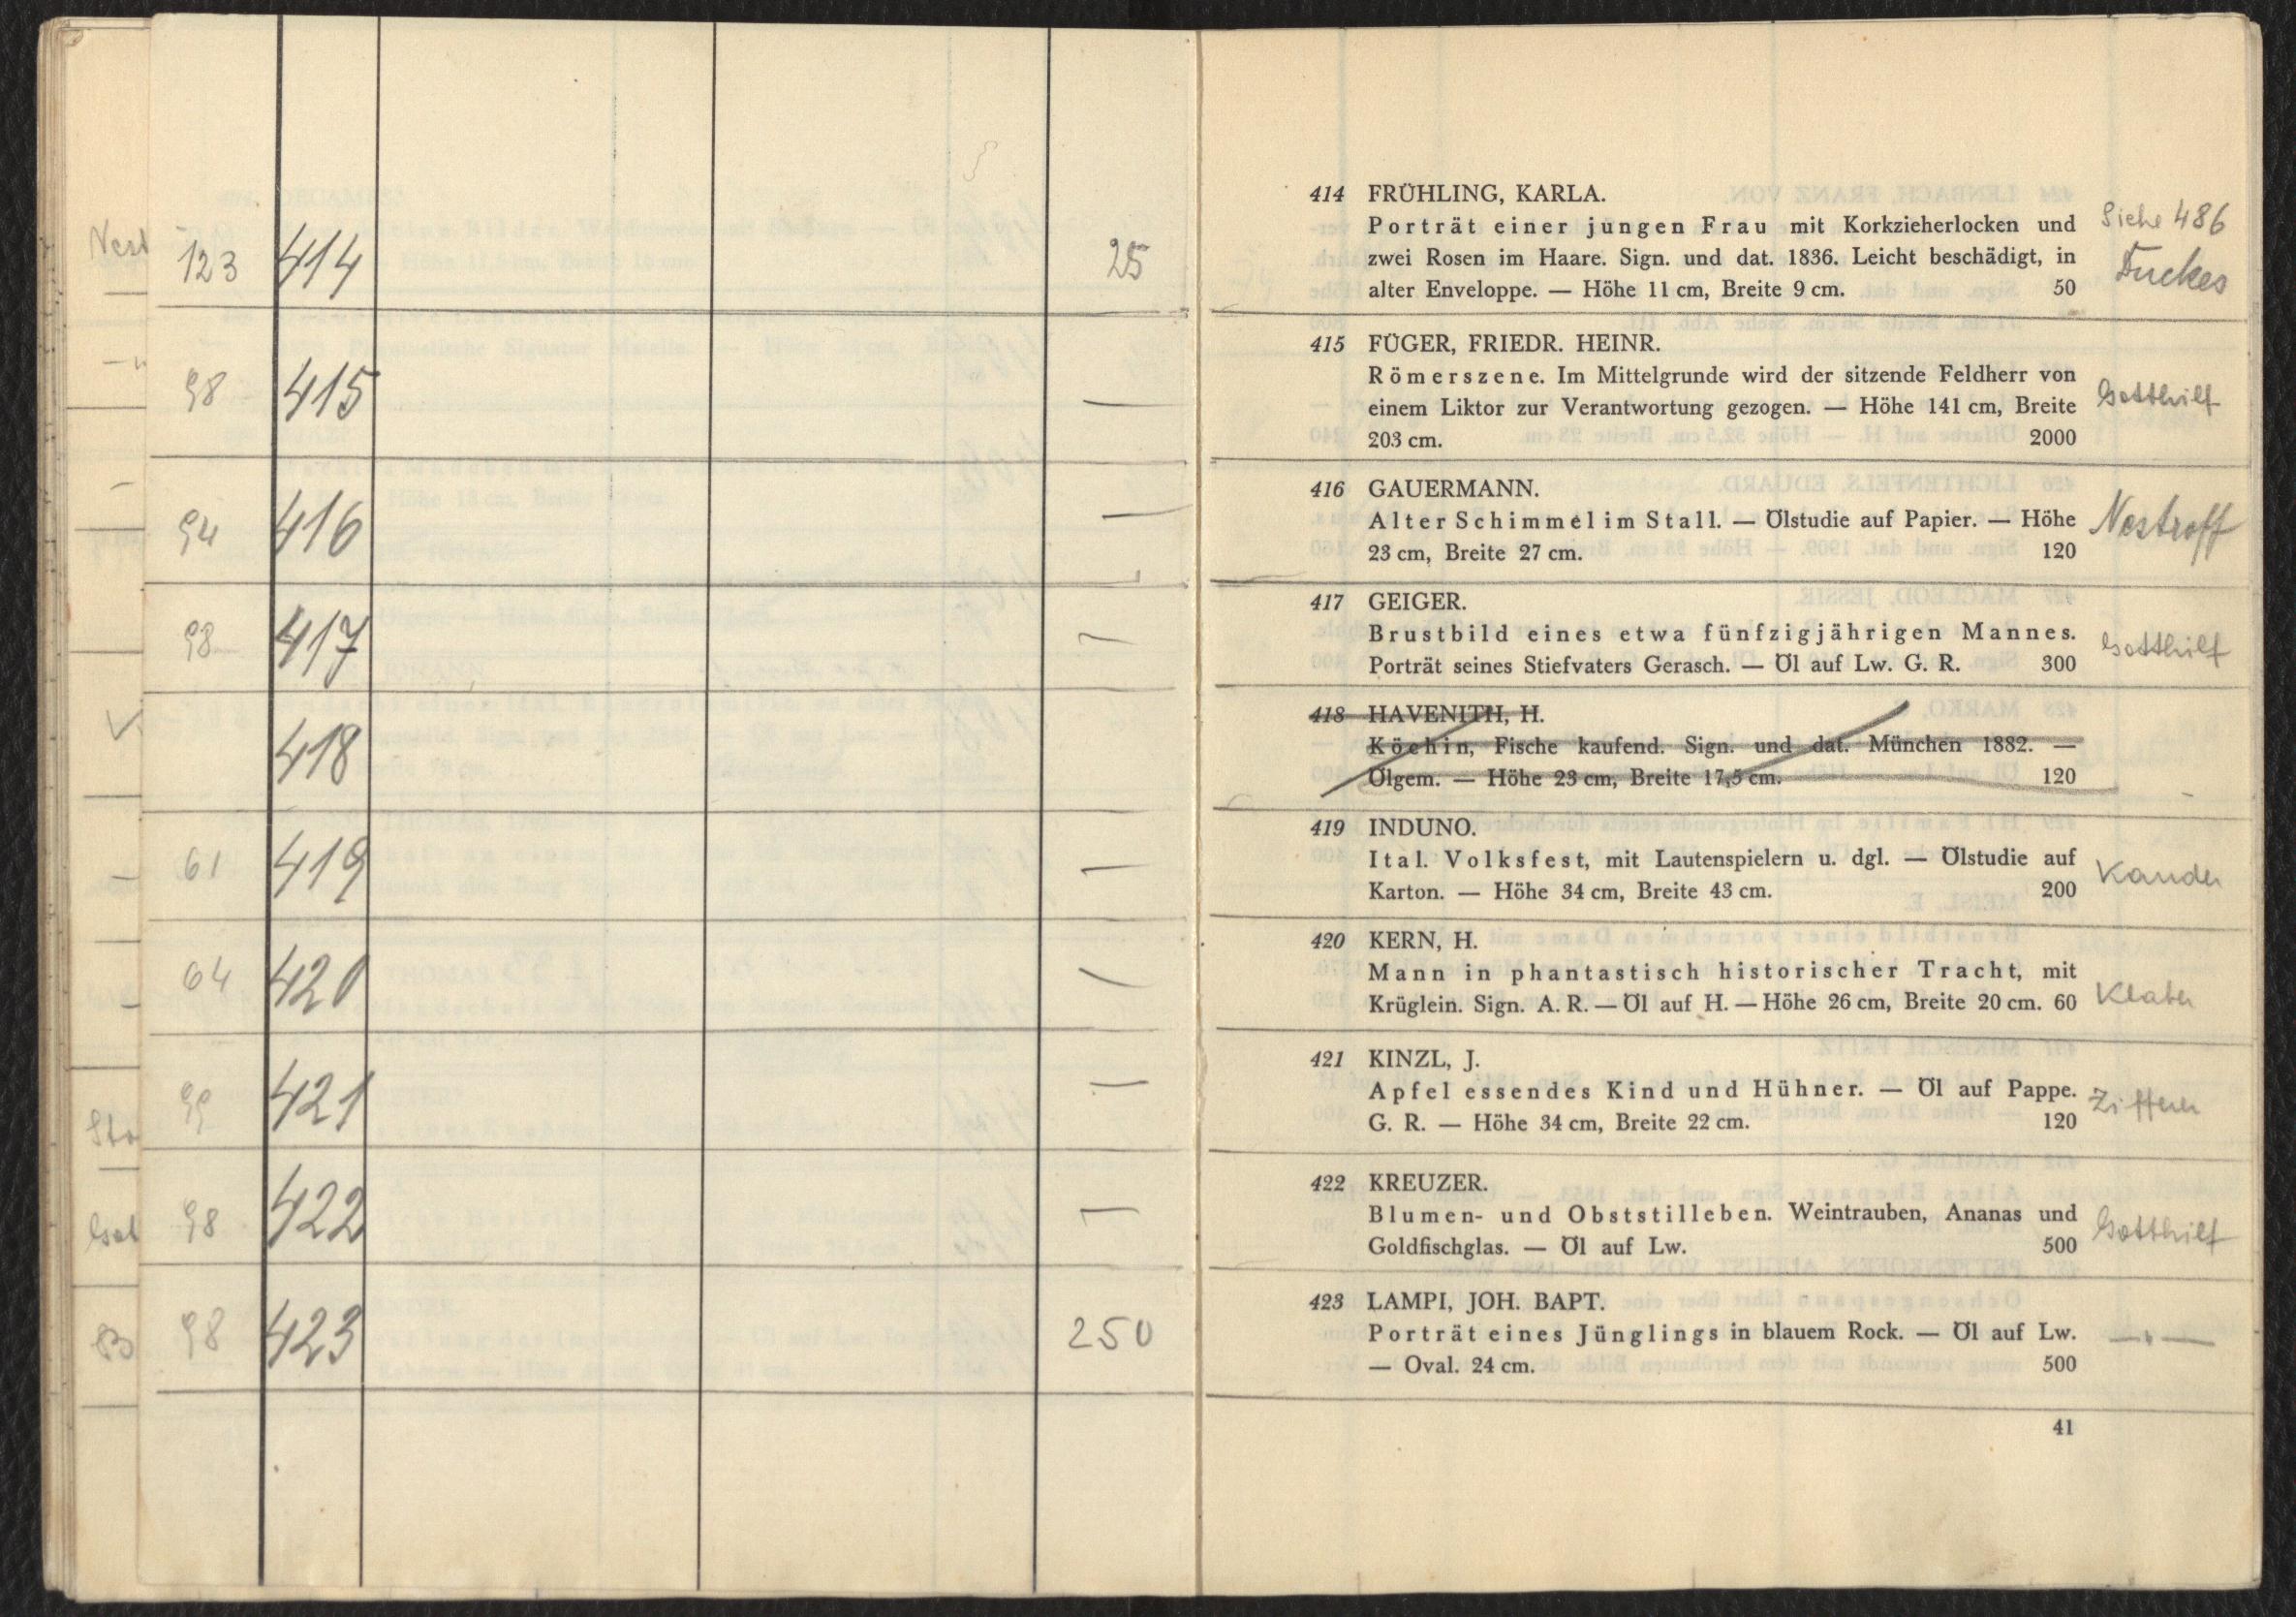 123 414 25
98 415 —
94 416 —
98 417 —
418
61 419 —
64 420 —
99 421 —
98 422 —
98 423 250
414 FRÜHLING, KARLA.
Porträt einer jungen Frau mit Korkzieherlocken und
zwei Rosen im Haare. Sign. und dat. 1836. Leicht beschädigt, in
alter Enveloppe. — Höhe 11 cm, Breite 9 cm. 50
Siehe 486
415 FÜGER, FRIEDR. HEINR.
Römerszene. Im Mittelgrunde wird der sitzende Feldherr von
einem Liktor zur Verantwortung gezogen. — Höhe 141 cm, Breite
203 cm. 2000
Gotthilf
416 GAUERMANN.
Alter Schimmel im Stall. — Ölstudie auf Papier. — Höhe
23 cm, Breite 27 cm. 120
Nostroff
417 GEIGER.
Brustbild eines etwa fünfzigjährigen Mannes.
Porträt seines Stiefvaters Gerasch. — Öl auf Lw. G. R. 300
Gotthilf
418 HAVENITH, H.
Köchin, Fische kaufend. Sign. und dat. München 1882. —
Ölgem. — Höhe 23 cm, Breite 17,5 cm. 120
419 INDUNO.
Ital. Volksfest, mit Lautenspielern u. dgl. — Ölstudie auf
Karton. — Höhe 34 cm, Breite 43 cm. 200
420 KERN, H.
Mann in phantastisch historischer Tracht, mit
Krüglein. Sign. A. R. — Öl auf H. — Höhe 26 cm, Breite 20 cm. 60
421 KINZL, J.
Apfel essendes Kind und Hühner. — Öl auf Pappe.
G. R. — Höhe 34 cm, Breite 22 cm. 120
422 KREUZER.
Blumen- und Obststilleben. Weintrauben, Ananas und
Goldfischglas. — Öl auf Lw. 500
Gotthilf
423 LAMPI, JOH. BAPT.
Porträt eines Jünglings in blauem Rock. — Öl auf Lw.
— Oval. 24 cm. 500
—"—
41